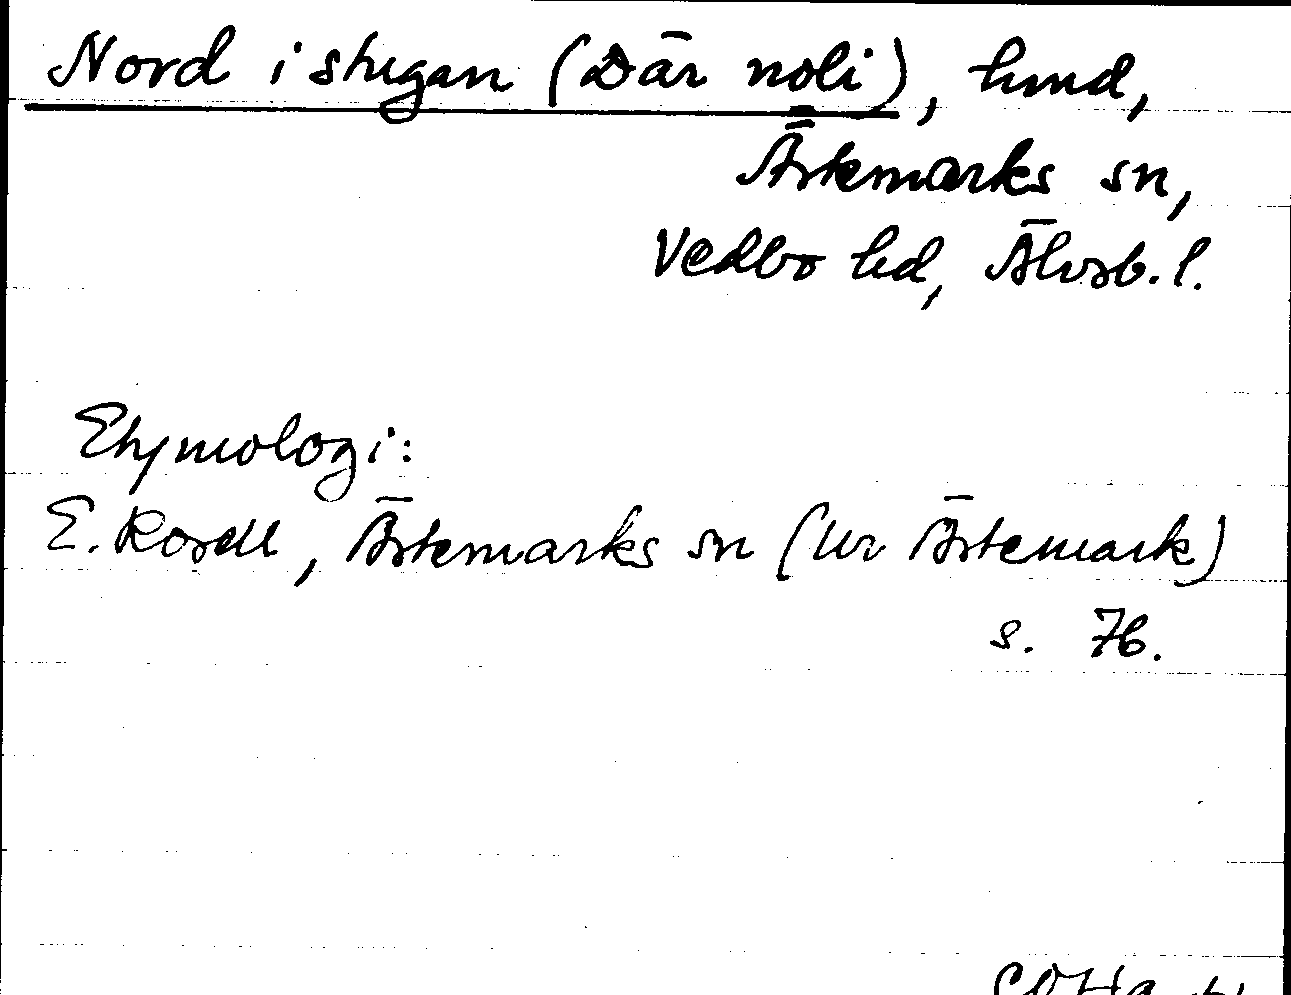 Nord i stugan (Där noli), hmd,
Ärtemarks sn,
Vedbo hd, Älvsb. l.
Etymologi:
E. Rosell, Ärtemarks sn (ur Ärtemark)
s. 76.